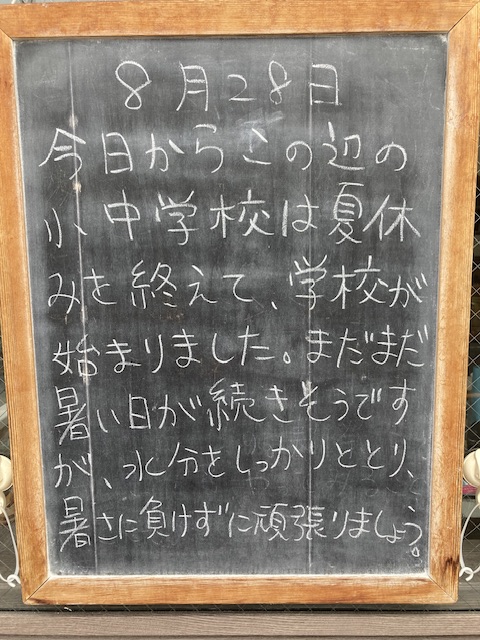 8月28日
今日からこの辺の
小中学校は夏休
みを終えて、学校が
始まりました。まだまだ
暑い日が続きそうです
が、水分をしっかりととり、
暑さに負けずに頑張りましょう。